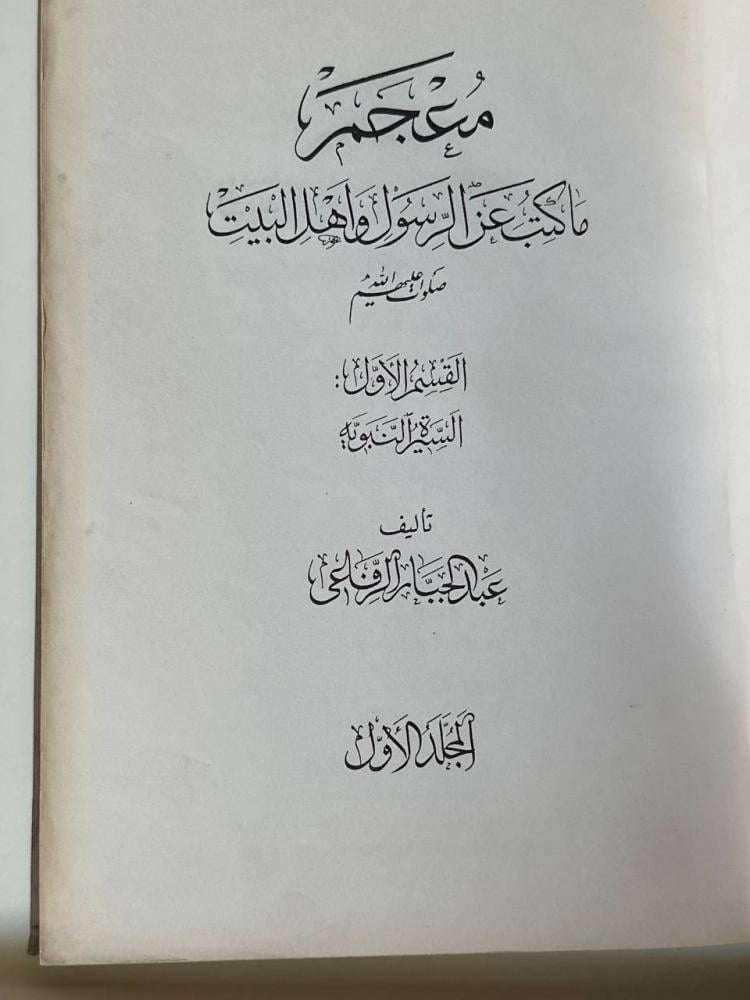 مُعْجَمُ
مَا كُتِبَ عَنِ الرَّسُولِ وَأَهْلِ البَيْتِ
صلوات الله عليهم
القِسْمُ الأَوَّلُ:
السِّيرَةُ النَّبَوِيَّه
تأليف
عَبْدالجَبَّار الرِّفَاعِي
المُجَلَّدُ الأَوَّل